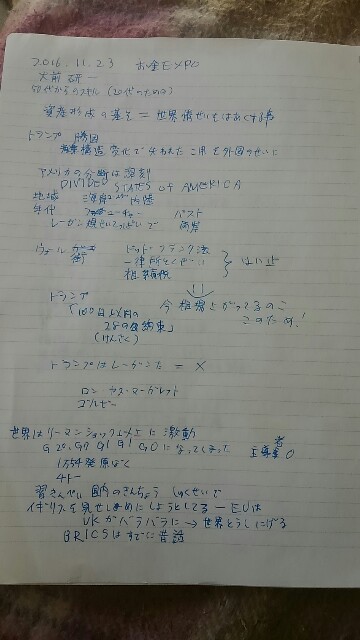 2016.11.23 お金EXPO
大前研一
50代からのスキル (20代のための)
資産形成の基き = 世界情せいをはあくする事
トランプ 勝因
構造変化で失われたこ用を外国のせいに
アメリカの分断は深刻
DIVIDED STATES OF AMERICA
地域 内陸
年代 フューチャー パスト
レーガン
ウォール街 ドッドフランク法
一律所とくぜい
相続税
はい止
⇓
トランプ 今相場上がってるのこ
「100日以内の このため!
28の約束」
(けんさく)
トランプはレーガンだ = ×
ロン ヤス マーガレット
ゴルビー
世界はリーマンショック以上に激動
G20, G7 G1 G0になってしまった 主導者0
習きんぺい 国内のきんちょう しゅくせいで
イギリスを見せしめにしようとしてる ー EUは
UKがバラバラに → 世界とうしにげる
BRICSはすでに昔話